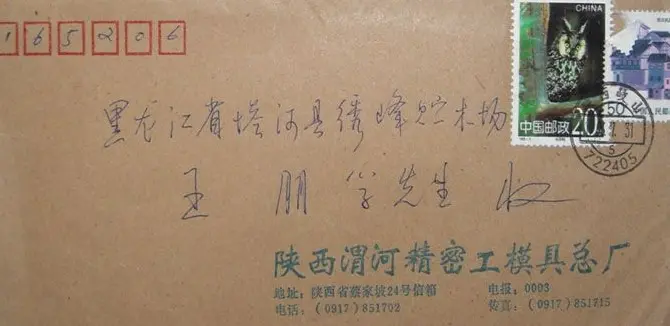 165206
CHINA
20分
中国邮政
50
722405
黑龙江省塔河县绣峰贮木场
王朋学先生 收
陕西渭河精密工模具总厂
地址：陕西省蔡家坡24号信箱 电报：0003
电话：(0917)851702 传真：(0917)851715